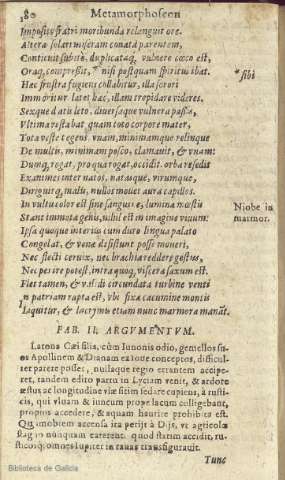 380 Metamorphoseon
Impositis fratri moribunda relanguit ore.
Altera solari miseram conata parentem,
Conticuit subitò, duplicataq; vulnere cæco est,
Oraq; compressit, * nisi postquam spiritus ibat.
*sibi
Hæc frustra fugiens collabitur, illa sorori
Immoritur: latet hæc, illam trepidare videres.
Sexque datis leto, diversaque vulnera passis,
Vltima restabat quam toto corpore mater,
Tota veste tegens: vnam, minimamque relinque
De multis, minimam posco, clamauit, & vnam:
Dumq; rogat, pro qua rogat, occidit. orba resedit
Exanimes inter natos, natasque, virumque,
Diriguitq; malis, nullos mouet aura capillos.
In vultu color est sine sanguine, lumina mœstis
Niobe in
marmor.
Stant immota genis, nihil est in imagine viuum.
Ipsa quoque interius cum duro lingua palato
Congelat, & venæ desistunt posse moueri,
Nec flecti ceruix, nec brachia reddere gestus,
Nec pes ire potest, intra quoq; viscera saxum est.
Flet tamen, & validi circundata turbine venti
In patriam rapta est, vbi fixa cacumine montis
Liquitur, & lacrymis etiam nunc marmora manāt.
FAB. II. ARGVMENTVM.
Latona Cæi filia, cùm Iunonis odio, gemellos suos
Apollinem & Dianam ex Ioue conceptos, difficulter
parere posset, nullaque regio errantem acciperet,
tandem edito partu in Lyciam venit, & ardore
æstus ac longitudine viæ sitim sedare cupiens, à rusticis,
qui vluam & iuncum prope lacum colligebant,
propius accedere, & aquam haurire prohibita est.
Qua mobiem accensa ira petijt à Dijs, vt agricolæ
stagno nunquam carerent. quod statim accidit, rusticosq;
omnes Iupiter in ranas transfigurauit.
Tunc
Biblioteca de Galicia